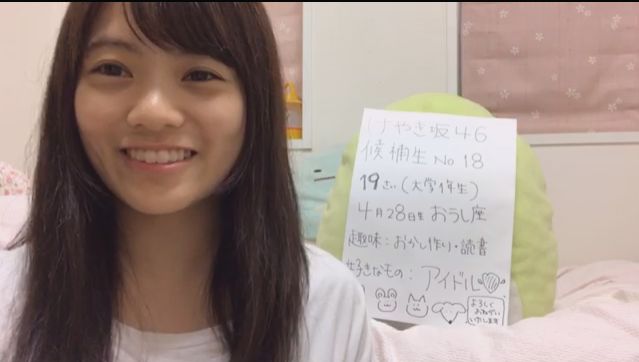 けやき坂46
候補生 No 18
19さい(大学1年生)
4月28日生 おうし座
趣味：おかし作り・読書
好きなもの：アイドル
よろしく
おねがい
いたします